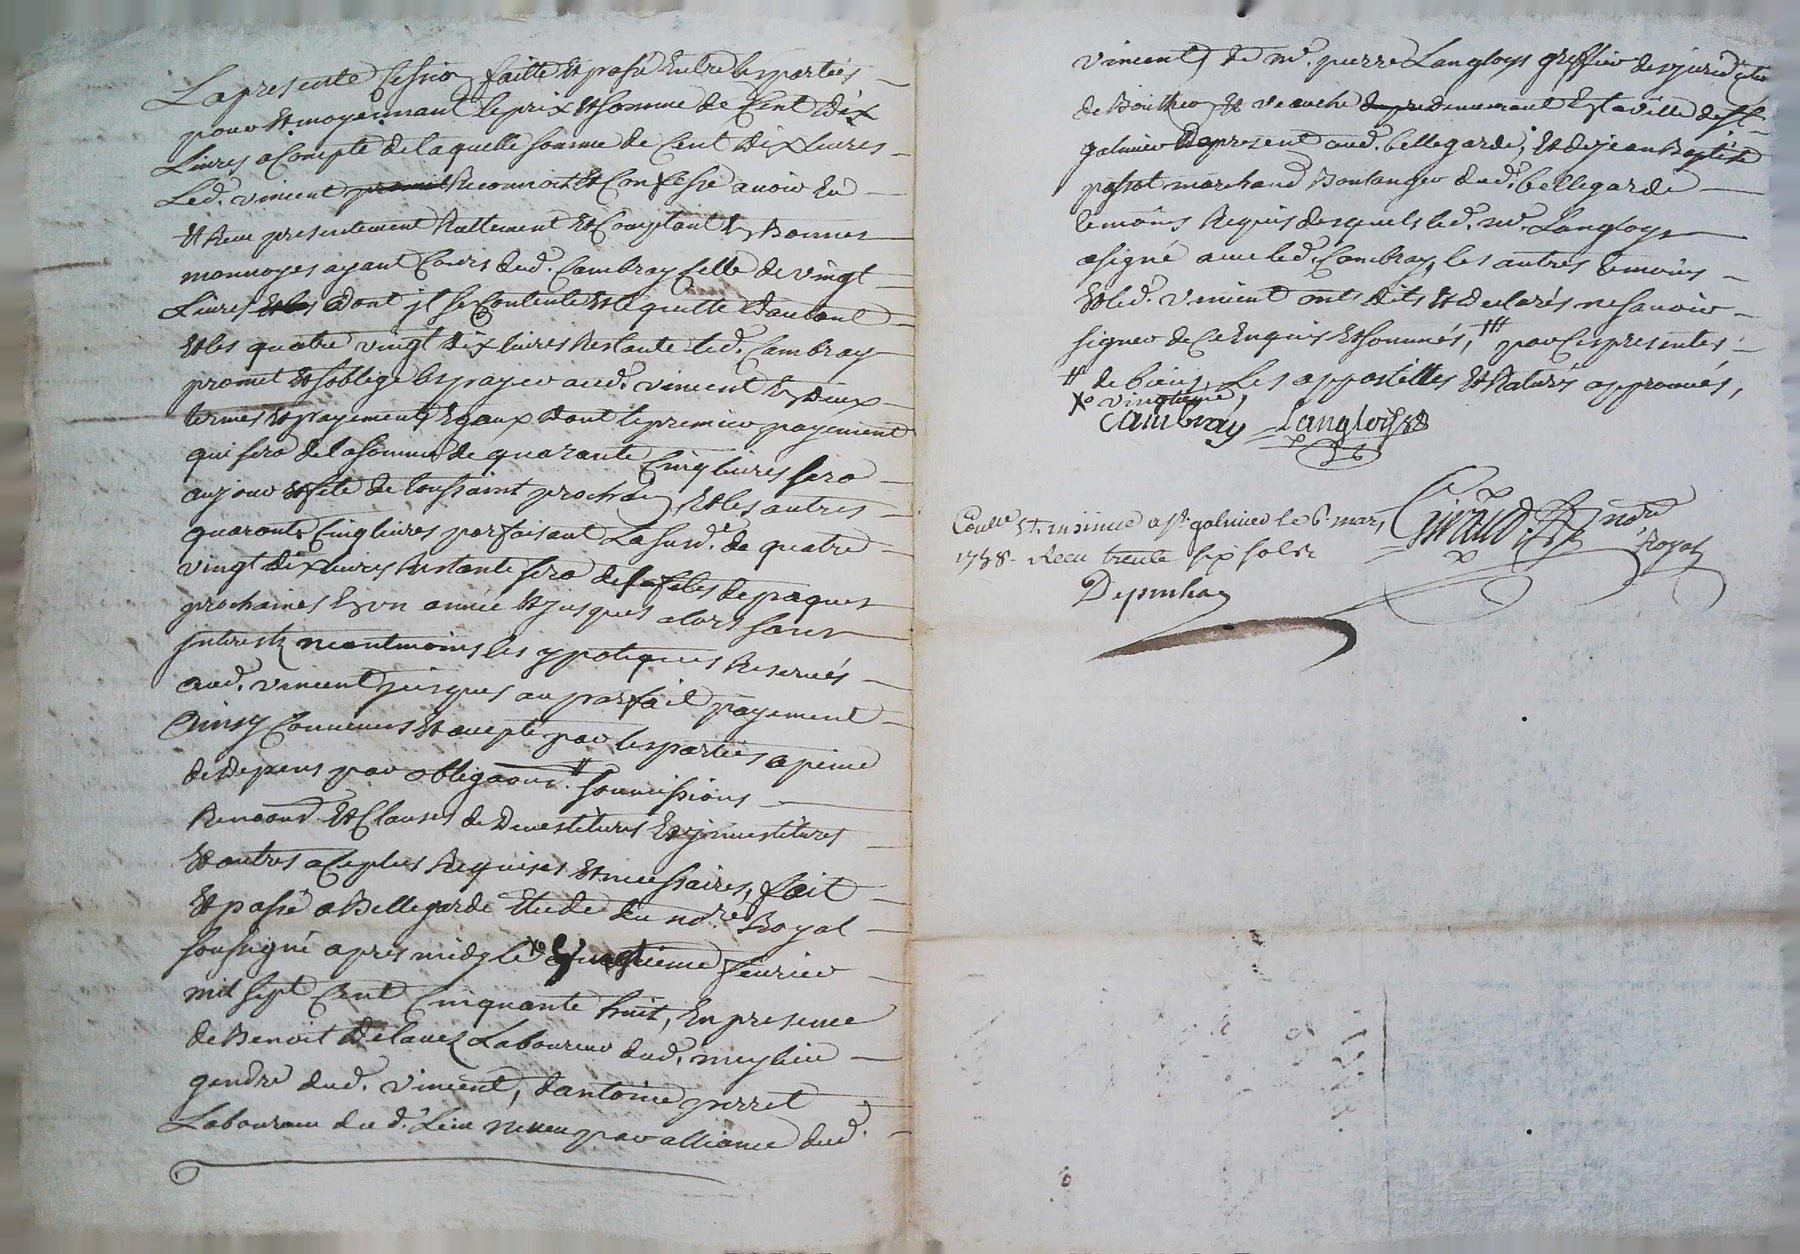 La presente cession faitte et passé entre les parties
pour et moyennant le prix et somme de cent dix
Livres a compte de laquelle somme de cent dix Livres
Led. vincent reconnoit et confessé avoir eu
et reeu presentement reallement et comptant en Bonnes
monnoyes ayant cours dud. Cambray celle de vingt
Livres dont jl se contente et le quitte dautant
et les quatre vingt dix livres restante led. Cambray
promet et soblige les payer aud. vincent en deux
termes et payements egaux dont le premier payement
qui sera de la somme de quarante cinq livres sera
au jour et fete de toussaint prochain et les autres
quarante cinq livres parfaisant La susd. de quatre
vingt dix livres restante sera de feles de paques
prochaines en un année et jusques alors sans
jnterests neantmoins les ypoteques reservés
aud. vincent jusques au parfait payement
ainsy convenus et accepté par les parties a peine
de depens par obligaons # soumissions
Renoond. et clauses de Devestitures et jnvestitures
et autres a ce plus requises et necessaires, fait
et passé a Bellegarde etude du nore. Royal
soussigné apres midy le xo vingtieme fevrier
mil sept cent cinquante huit, En presence
de Benoit Delauez Laboureur dud. meylieu
gendre dud. vincent, dantoine perret
Laboureur du d. lieu neveu par alliance dud.
vincent, de mr. pierre Langloys greffier des jurid
de Bouthéon et veauche demeurant en la ville de St.
galmier present aud. bellegarde, et de jean Baptiste
passot marchand Boulanger dud. bellegarde
temoins requis desquels led. mr. Langloys
a signé avec led. Cambray, les autres temoins
et led. vincent ont dits et declarés ne savoir
signer de ce enquis et sommés, ### par ces presentes
# de biens, Les appostilles et ratures approuvés,
xo vingtieme,
Cambray Langloys
Coullé et insinué a St. galmier le 6. mars
1758. Recu trente six sols
Giraud nore
Royal